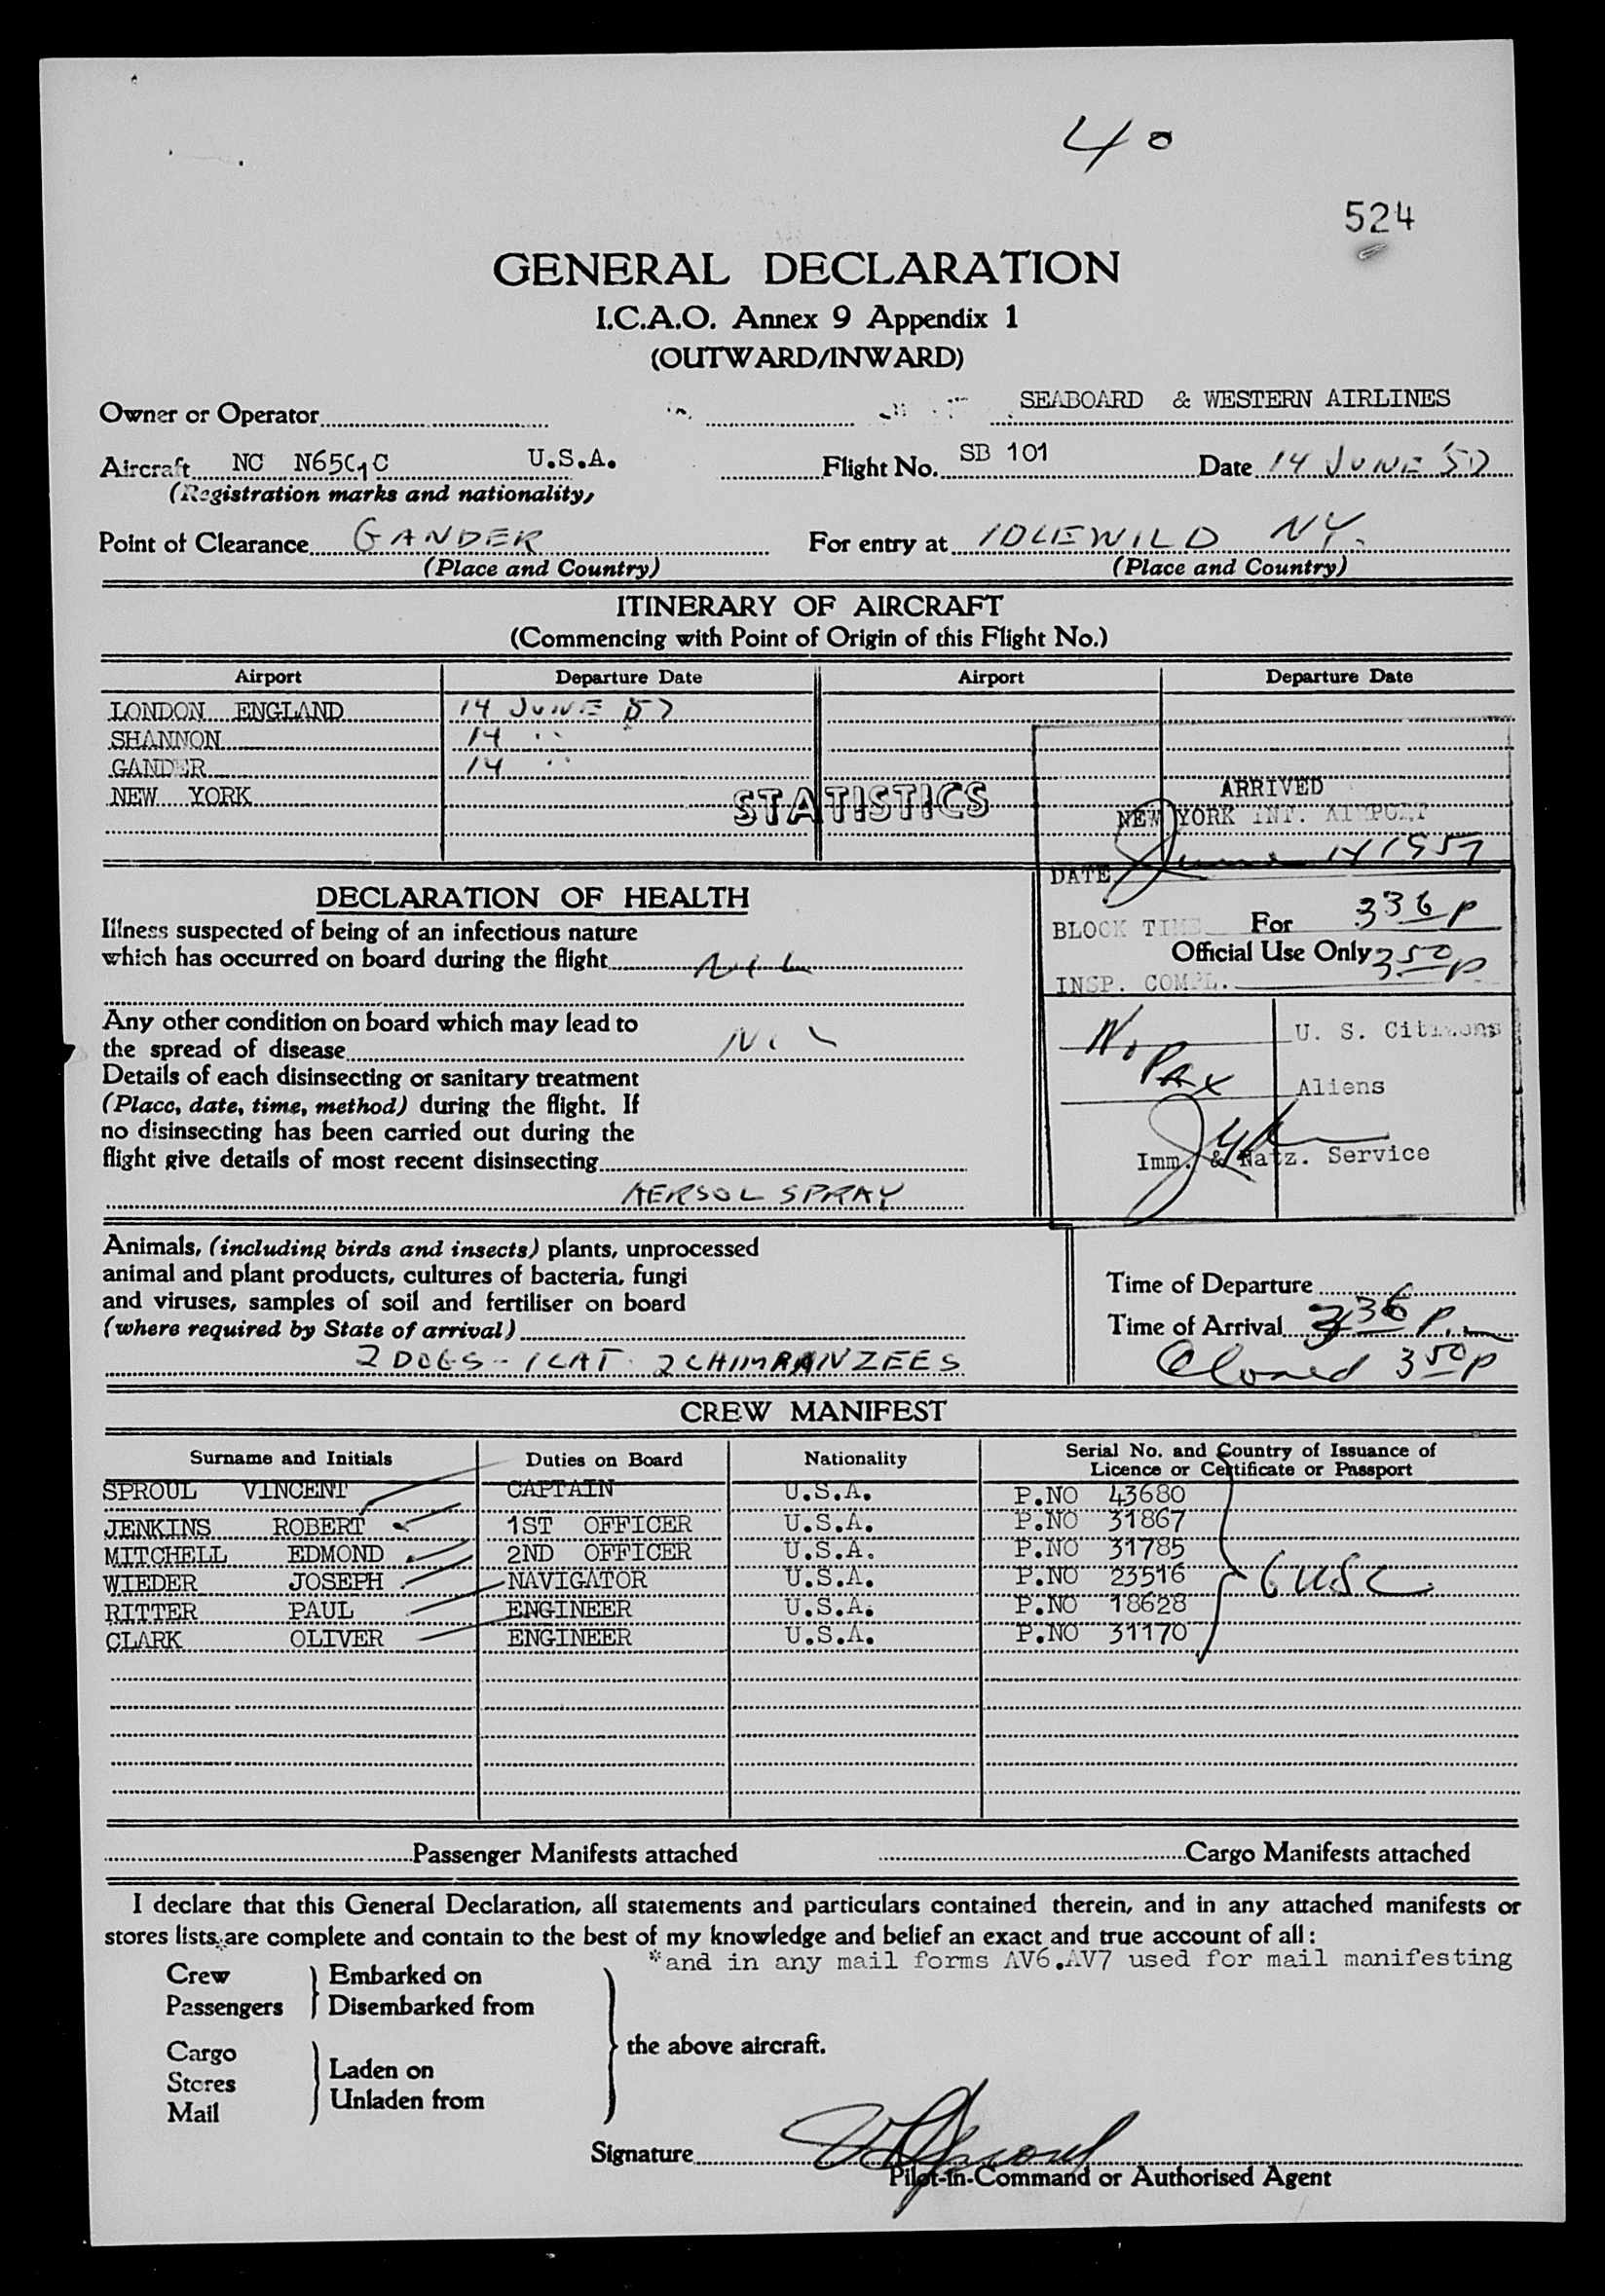 40
524
GENERAL DECLARATION
I.C.A.O. Annex 9 Appendix 1
(OUTWARD/INWARD)
Owner or Operator SEABOARD & WESTERN AIRLINES
Aircraft NC U.S.A. Flight No. SB 101 Date 14 JUNE 57
(Registration marks and nationality)
Point of Clearance GANDER For entry at IDLEWILD NY.
(Place and Country) (Place and Country)
ITINERARY OF AIRCRAFT
(Commencing with Point of Origin of this Flight No.)
Airport Departure Date Airport Departure Date
LONDON ENGLAND 14 JUNE 57
SHANNON 14 "
GANDER 14 "
NEW YORK
STATISTICS
ARRIVED
NEW YORK INT. AIRPORT
DATE June 14 1957
BLOCK TIME 336 p
For
Official Use Only
INSP. COMPL. 350 p
No Pax
U. S. Citizens
Aliens
Imm. & Natz. Service
DECLARATION OF HEALTH
Illness suspected of being of an infectious nature
which has occurred on board during the flight NIL
Any other condition on board which may lead to
the spread of disease NIL
Details of each disinsecting or sanitary treatment
(Place, date, time, method) during the flight. If
no disinsecting has been carried out during the
flight give details of most recent disinsecting
AERSOL SPRAY
Animals, (including birds and insects) plants, unprocessed
animal and plant products, cultures of bacteria, fungi
and viruses, samples of soil and fertiliser on board
(where required by State of arrival)
2 DOGS - 1 CAT 2 CHIMPANZEES
Time of Departure
Time of Arrival 336 P.m
Closed 350 p
CREW MANIFEST
Surname and Initials Duties on Board Nationality Serial No. and Country of Issuance of
Licence or Certificate or Passport
SPROUL VINCENT CAPTAIN U.S.A. P.NO 43680
JENKINS ROBERT 1ST OFFICER U.S.A. P.NO 31867
MITCHELL EDMOND 2ND OFFICER U.S.A. P.NO 31785
WIEDER JOSEPH NAVIGATOR U.S.A. P.NO 23516
RITTER PAUL ENGINEER U.S.A. P.NO 18628
CLARK OLIVER ENGINEER U.S.A. P.NO 31170
6 USC
Passenger Manifests attached Cargo Manifests attached
I declare that this General Declaration, all statements and particulars contained therein, and in any attached manifests or
stores lists*are complete and contain to the best of my knowledge and belief an exact and true account of all:
*and in any mail forms AV6.AV7 used for mail manifesting
Crew Embarked on
Passengers Disembarked from
the above aircraft.
Cargo
Stores Laden on
Mail Unladen from
Signature VSproul
Pilot-in-Command or Authorised Agent